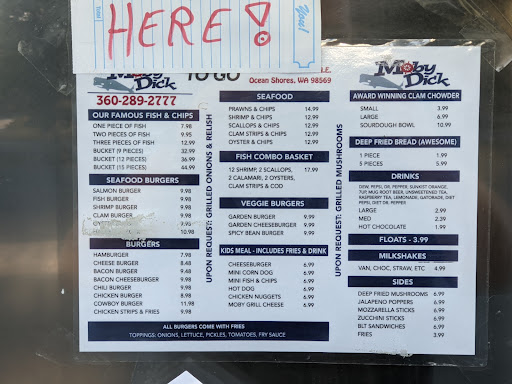 HERE!
You!
Moby Dick
TO GO
Ocean Shores, WA 98569
360-289-2777
OUR FAMOUS FISH & CHIPS
ONE PIECE OF FISH 7.98
TWO PIECES OF FISH 9.95
THREE PIECES OF FISH 12.99
BUCKET (9 PIECES) 32.99
BUCKET (12 PIECES) 36.99
BUCKET (15 PIECES) 44.99
SEAFOOD BURGERS
SALMON BURGER 9.98
FISH BURGER 9.98
SHRIMP BURGER 9.98
CLAM BURGER 9.98
9.98
10.98
BURGERS
HAMBURGER 7.98
CHEESE BURGER 8.48
BACON BURGER 9.48
BACON CHEESEBURGER 9.98
CHILI BURGER 9.98
CHICKEN BURGER 8.98
COWBOY BURGER 11.98
CHICKEN STRIPS & FRIES 9.98
UPON REQUEST: GRILLED ONIONS & RELISH
SEAFOOD
PRAWNS & CHIPS 14.99
SHRIMP & CHIPS 12.99
SCALLOPS & CHIPS 12.99
CLAM STRIPS & CHIPS 12.99
OYSTER & CHIPS 12.99
FISH COMBO BASKET
12 SHRIMP, 2 SCALLOPS, 17.99
2 CALAMARI, 2 OYSTERS,
CLAM STRIPS & COD
VEGGIE BURGERS
GARDEN BURGER 9.99
GARDEN CHEESEBURGER 9.99
SPICY BEAN BURGER 9.99
KIDS MEAL - INCLUDES FRIES & DRINK
CHEESEBURGER 6.99
MINI CORN DOG 6.99
MINI FISH & CHIPS 6.99
HOT DOG 6.99
CHICKEN NUGGETS 6.99
MOBY GRILL CHEESE 6.99
UPON REQUEST: GRILLED MUSHROOMS
Moby Dick
AWARD WINNING CLAM CHOWDER
SMALL 3.99
LARGE 6.99
SOURDOUGH BOWL 10.99
DEEP FRIED BREAD (AWESOME)
1 PIECE 1.99
5 PIECES 5.99
DRINKS
DEW, PEPSI, DR. PEPPER, SUNKIST ORANGE,
TUP, MUG ROOT BEER, UNSWEETENED TEA,
RASPBERRY TEA, LEMONADE, GATORADE, DIET
PEPSI, DIET DR. PEPPER
LARGE 2.99
MED 2.39
HOT CHOCOLATE 1.99
FLOATS - 3.99
MILKSHAKES
VAN, CHOC, STRAW, ETC 4.99
SIDES
DEEP FRIED MUSHROOMS 6.99
JALAPENO POPPERS 6.99
MOZZARELLA STICKS 6.99
ZUCCHINI STICKS 6.99
BLT SANDWICHES 6.99
FRIES 3.99
ALL BURGERS COME WITH FRIES
TOPPINGS: ONIONS, LETTUCE, PICKLES, TOMATOES, FRY SAUCE